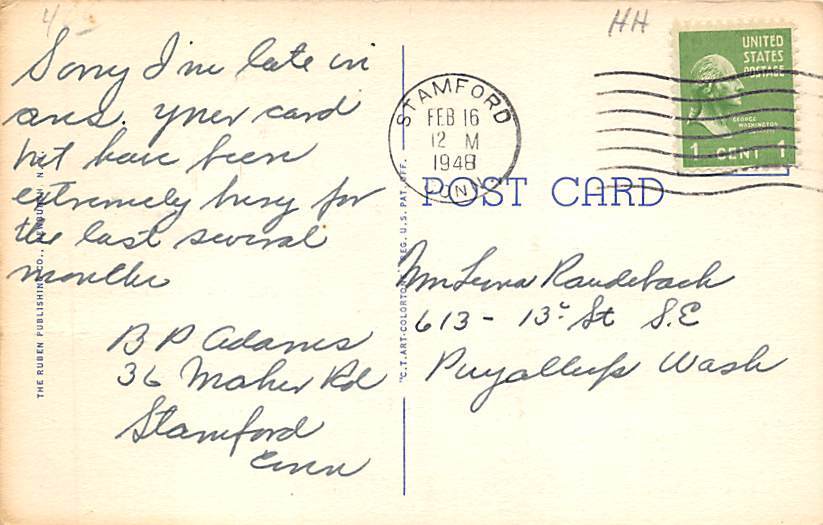 4
Sorry I'm late in
ans. your card
but have been
extremely busy for
the last several
months
B P Adams
36 Maher Rd
Stamford
Conn
THE RUBEN PUBLISHING CO., NEWBURGH, N.Y.
"C.T. ART-COLORTONE" REG. U.S. PAT. OFF.
HH
STAMFORD
FEB 16
12 M
1948
CONN
UNITED
STATES
POSTAGE
GEORGE
WASHINGTON
1 CENT 1
POST CARD
613 - 13th St S.E
Puyallup Wash